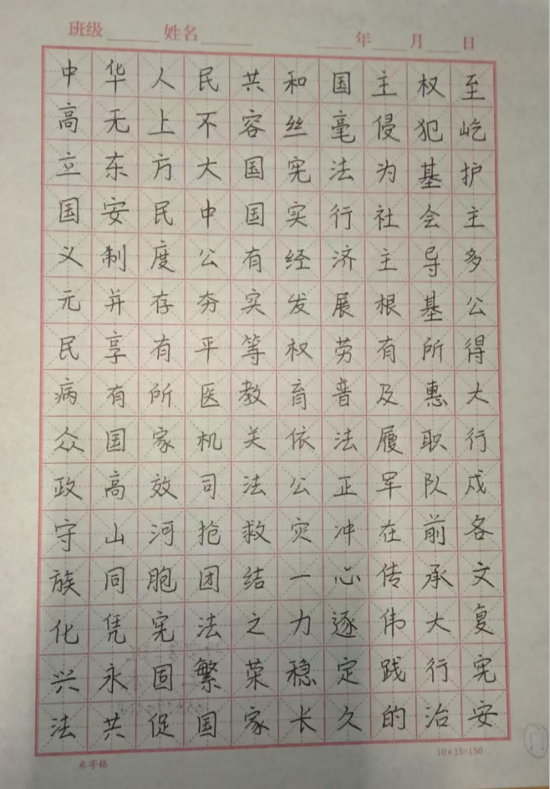 班级 姓名 年 月 日
中华人民共和国主权至
高无上不容丝毫侵犯屹
立东方大国宪法为基护
国安民中国实行社会主
义制度公有经济主导多
元并存夯实发展根基公
民享有平等权劳有所得
病有所医教育普及惠大
众国家机关依法履职行
政高效司法公正军队戍
守山河抢救灾冲在前各
族同胞团结一心传承文
化凭宪法之力逐伟大复
兴永固繁荣稳定践行宪
法共促国家长久的治安
米字格
10×15=150